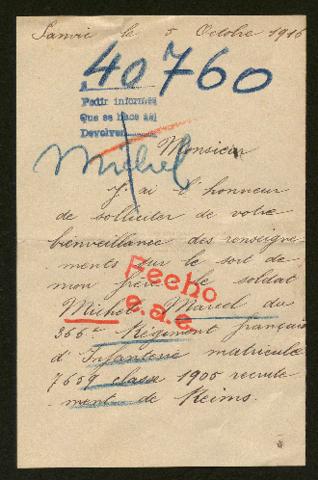 Sanvic le 5 Octobre 1916
40760
A
Pedir informes
Que se hace así
Devolver
Michel
Monsieur
J'ai l'honneur
de solliciter de votre
bienveillance des renseigne
ments sur le sort de
mon frère le soldat
Fecho
Michel Marcel du
e.a.e
366e Régiment français
d'Infanterie matricule
7659 classe 1905 recrute
ment de Reims.